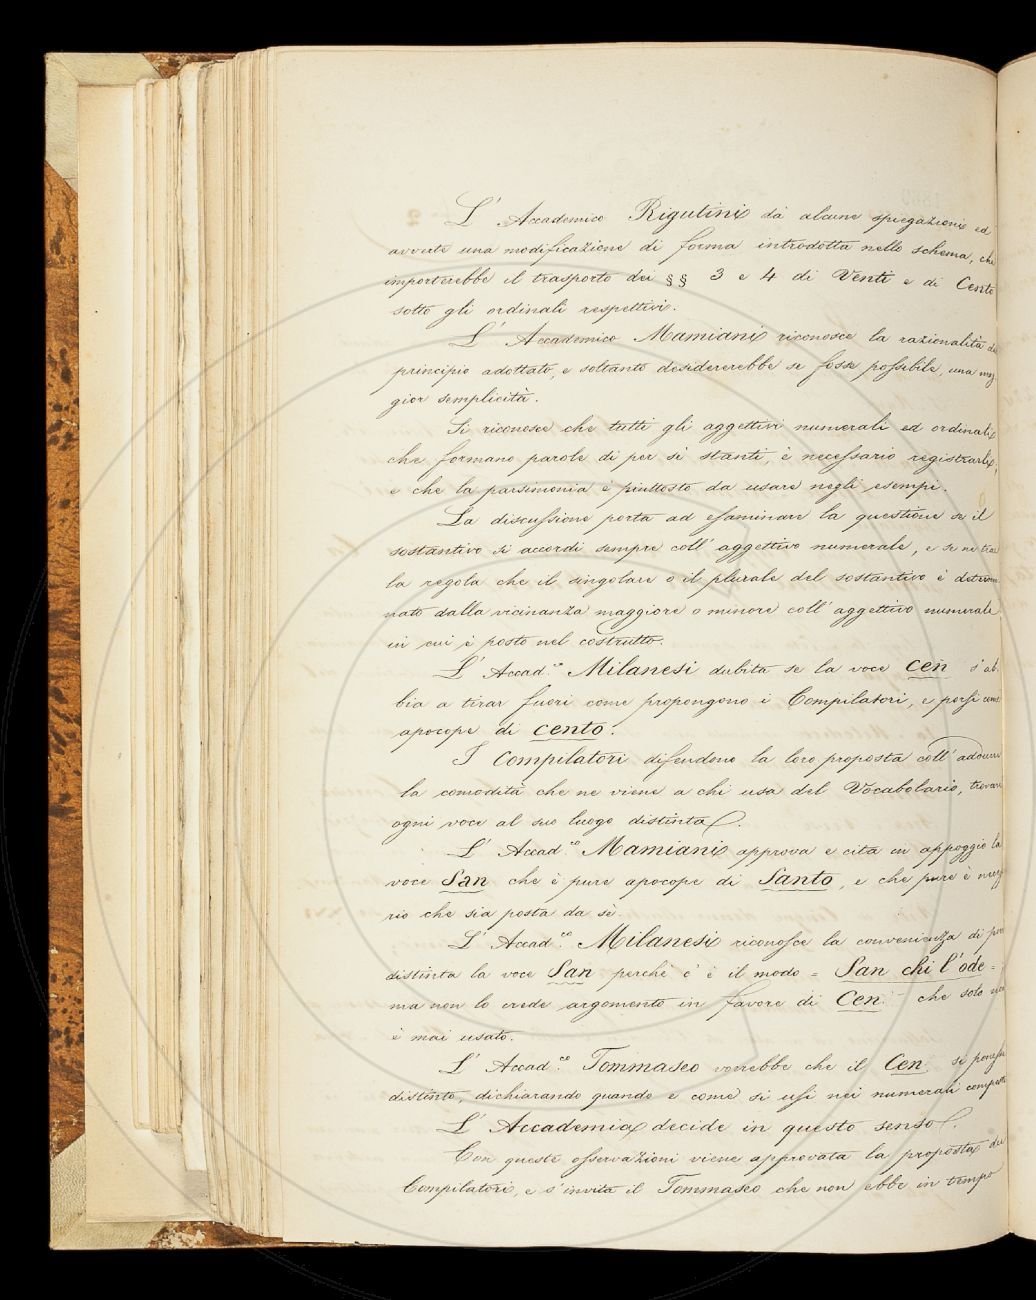 L' Accademico Rigutini dà alcune spiegazioni ed
avverte una modificazione di forma introdotta nello schema, che
importerebbe il trasporto dei §§ 3 e 4 di Venti e di Cento
sotto gli ordinali respettivi.
L' Accademico Mamiani riconosce la razionalità del
principio adottato, e soltanto desidererebbe se fosse possibile, una mag
gior semplicità.
Si riconosce che tutti gli aggettivi numerali ed ordinali,
che formano parole di per sè stanti, è necessario registrarli,
e che la parsimonia è piuttosto da usare negli esempi.
La discussione porta ad esaminare la questione se il
sostantivo si accordi sempre coll' aggettivo numerale, e se ne trae
la regola che il singolare o il plurale del sostantivo è determi
nato dalla vicinanza maggiore o minore coll' aggettivo numerale
in cui è posto nel costrutto.
L' Accad.co Milanesi dubita se la voce Cen s' ab
bia a tirar fuori come propongono i Compilatori, e porsi come
apocope di cento.
I Compilatori difendono la loro proposta coll' addurre
la comodità che ne viene a chi usa del Vocabolario, trovare
ogni voce al suo luogo distinta.
L' Accad.co Mamiani approva e cita in appoggio la
voce San che è pure apocope di Santo, e che pure è necess
rio che sia posta da sè.
L' Accad.co Milanesi riconosce la convenienza di por
distinta la voce San perchè c' è il modo = San chi l'ode =
ma non lo crede argomento in favore di Cen. che solo non
è mai usato.
L' Accad.co Tommaseo vorrebbe che il Cen si ponesse
distinto, dichiarando quando e come si usi nei numerali composti
L' Accademia decide in questo senso.
Con queste osservazioni viene approvata la proposta dei
Compilatori, e s' invita il Tommaseo che non ebbe in tempo